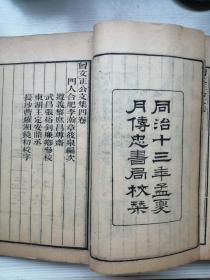 同治十三年孟夏
月傳忠書局校栞
曾文正公文集四卷
門人合肥李瀚章筱泉編次
遵義黎庶昌蓴齋
武昌張裕釗廉卿參校
東湖王定安鼎丞
長沙曹耀湘鏡初校字